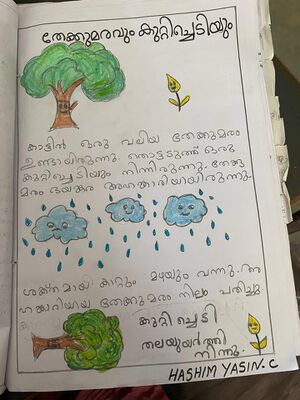 തേക്കുമരവും കുറ്റിച്ചെടിയും
കാട്ടിൽ ഒരു വലിയ തേക്കുമരം
ഉണ്ടായിരുന്നു. തൊട്ടടുത്ത് ഒരു
കുറ്റിച്ചെടിയും നിന്നിരുന്നു. തേക്കു
മരം ഭയങ്കര അഹങ്കാരിയായിരുന്നു.
ശക്തമായി കാറ്റും മഴയും വന്നു. അ
ഹങ്കാരിയായ തേക്കുമരം നിലം പതിച്ചു
കുറ്റിച്ചെടി
തലയുയർത്തി
നിന്നു.
HASHIM YASIN. C